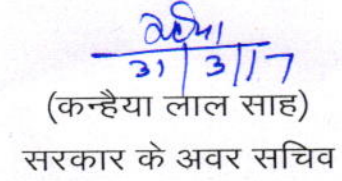 31/3/17
(कन्हैया लाल साह)
सरकार के अवर सचिव